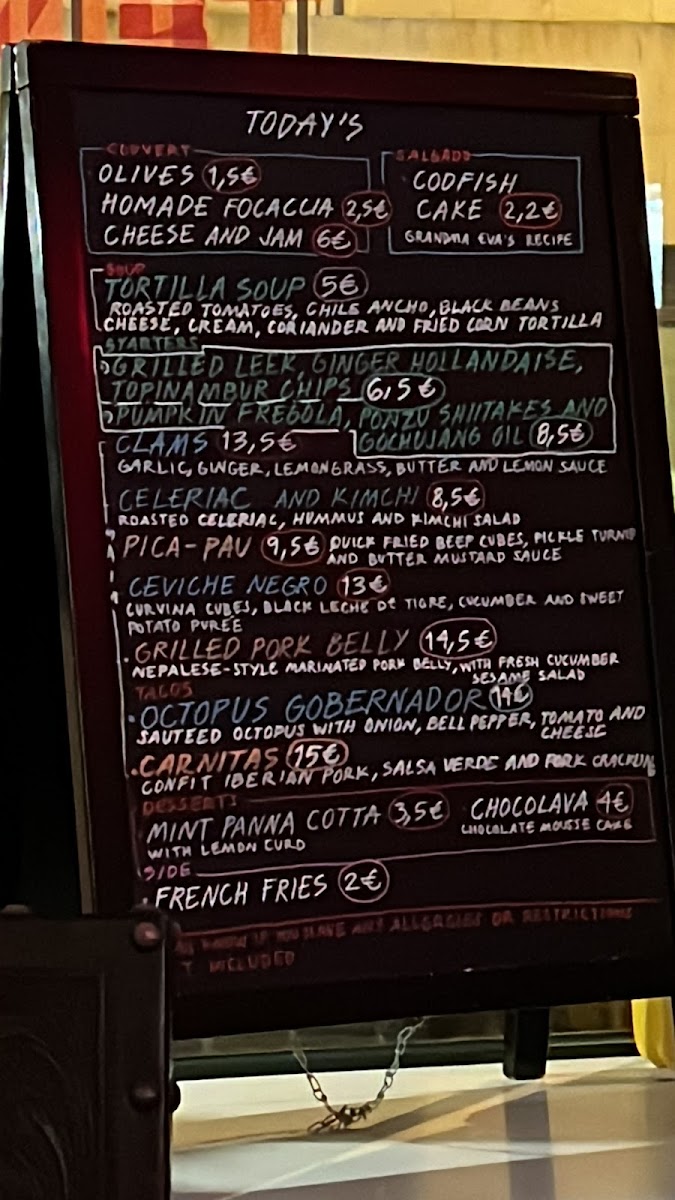 TODAY'S
COUVERT
OLIVES 1,5€
HOMADE FOCACCIA 2,5€
CHEESE AND JAM 6€
SALGADO
CODFISH
CAKE 2,2€
GRANDMA EVA'S RECIPE
SOUP
TORTILLA SOUP 5€
ROASTED TOMATOES, CHILE ANCHO, BLACK BEANS
CHEESE, CREAM, CORIANDER AND FRIED CORN TORTILLA
STARTERS
GRILLED LEEK, GINGER HOLLANDAISE,
TOPINAMBUR CHIPS 6,5€
PUMPKIN FREGOLA, PONZU SHIITAKES AND
GOCHUJANG OIL 8,5€
CLAMS 13,5€
GARLIC, GINGER, LEMONGRASS, BUTTER AND LEMON SAUCE
CELERIAC AND KIMCHI 8,5€
ROASTED CELERIAC, HUMMUS AND KIMCHI SALAD
PICA-PAU 9,5€ QUICK FRIED BEEF CUBES, PICKLE TURNIP
AND BUTTER MUSTARD SAUCE
CEVICHE NEGRO 13€
CURVINA CUBES, BLACK LECHE DE TIGRE, CUCUMBER AND SWEET
POTATO PUREE
GRILLED PORK BELLY 14,5€
NEPALESE-STYLE MARINATED PORK BELLY, WITH FRESH CUCUMBER
SESAME SALAD
TACOS
OCTOPUS GOBERNADOR 14€
SAUTEED OCTOPUS WITH ONION, BELL PEPPER, TOMATO AND
CHEESE
CARNITAS 15€
CONFIT IBERIAN PORK, SALSA VERDE AND PORK CRACKLING
DESSERTS
MINT PANNA COTTA 3,5€
WITH LEMON CURD
CHOCOLAVA 4€
CHOCOLATE MOUSSE CAKE
SIDE
FRENCH FRIES 2€
KNOW IF YOU HAVE ANY ALLERGIES OR RESTRICTIONS
INCLUDED